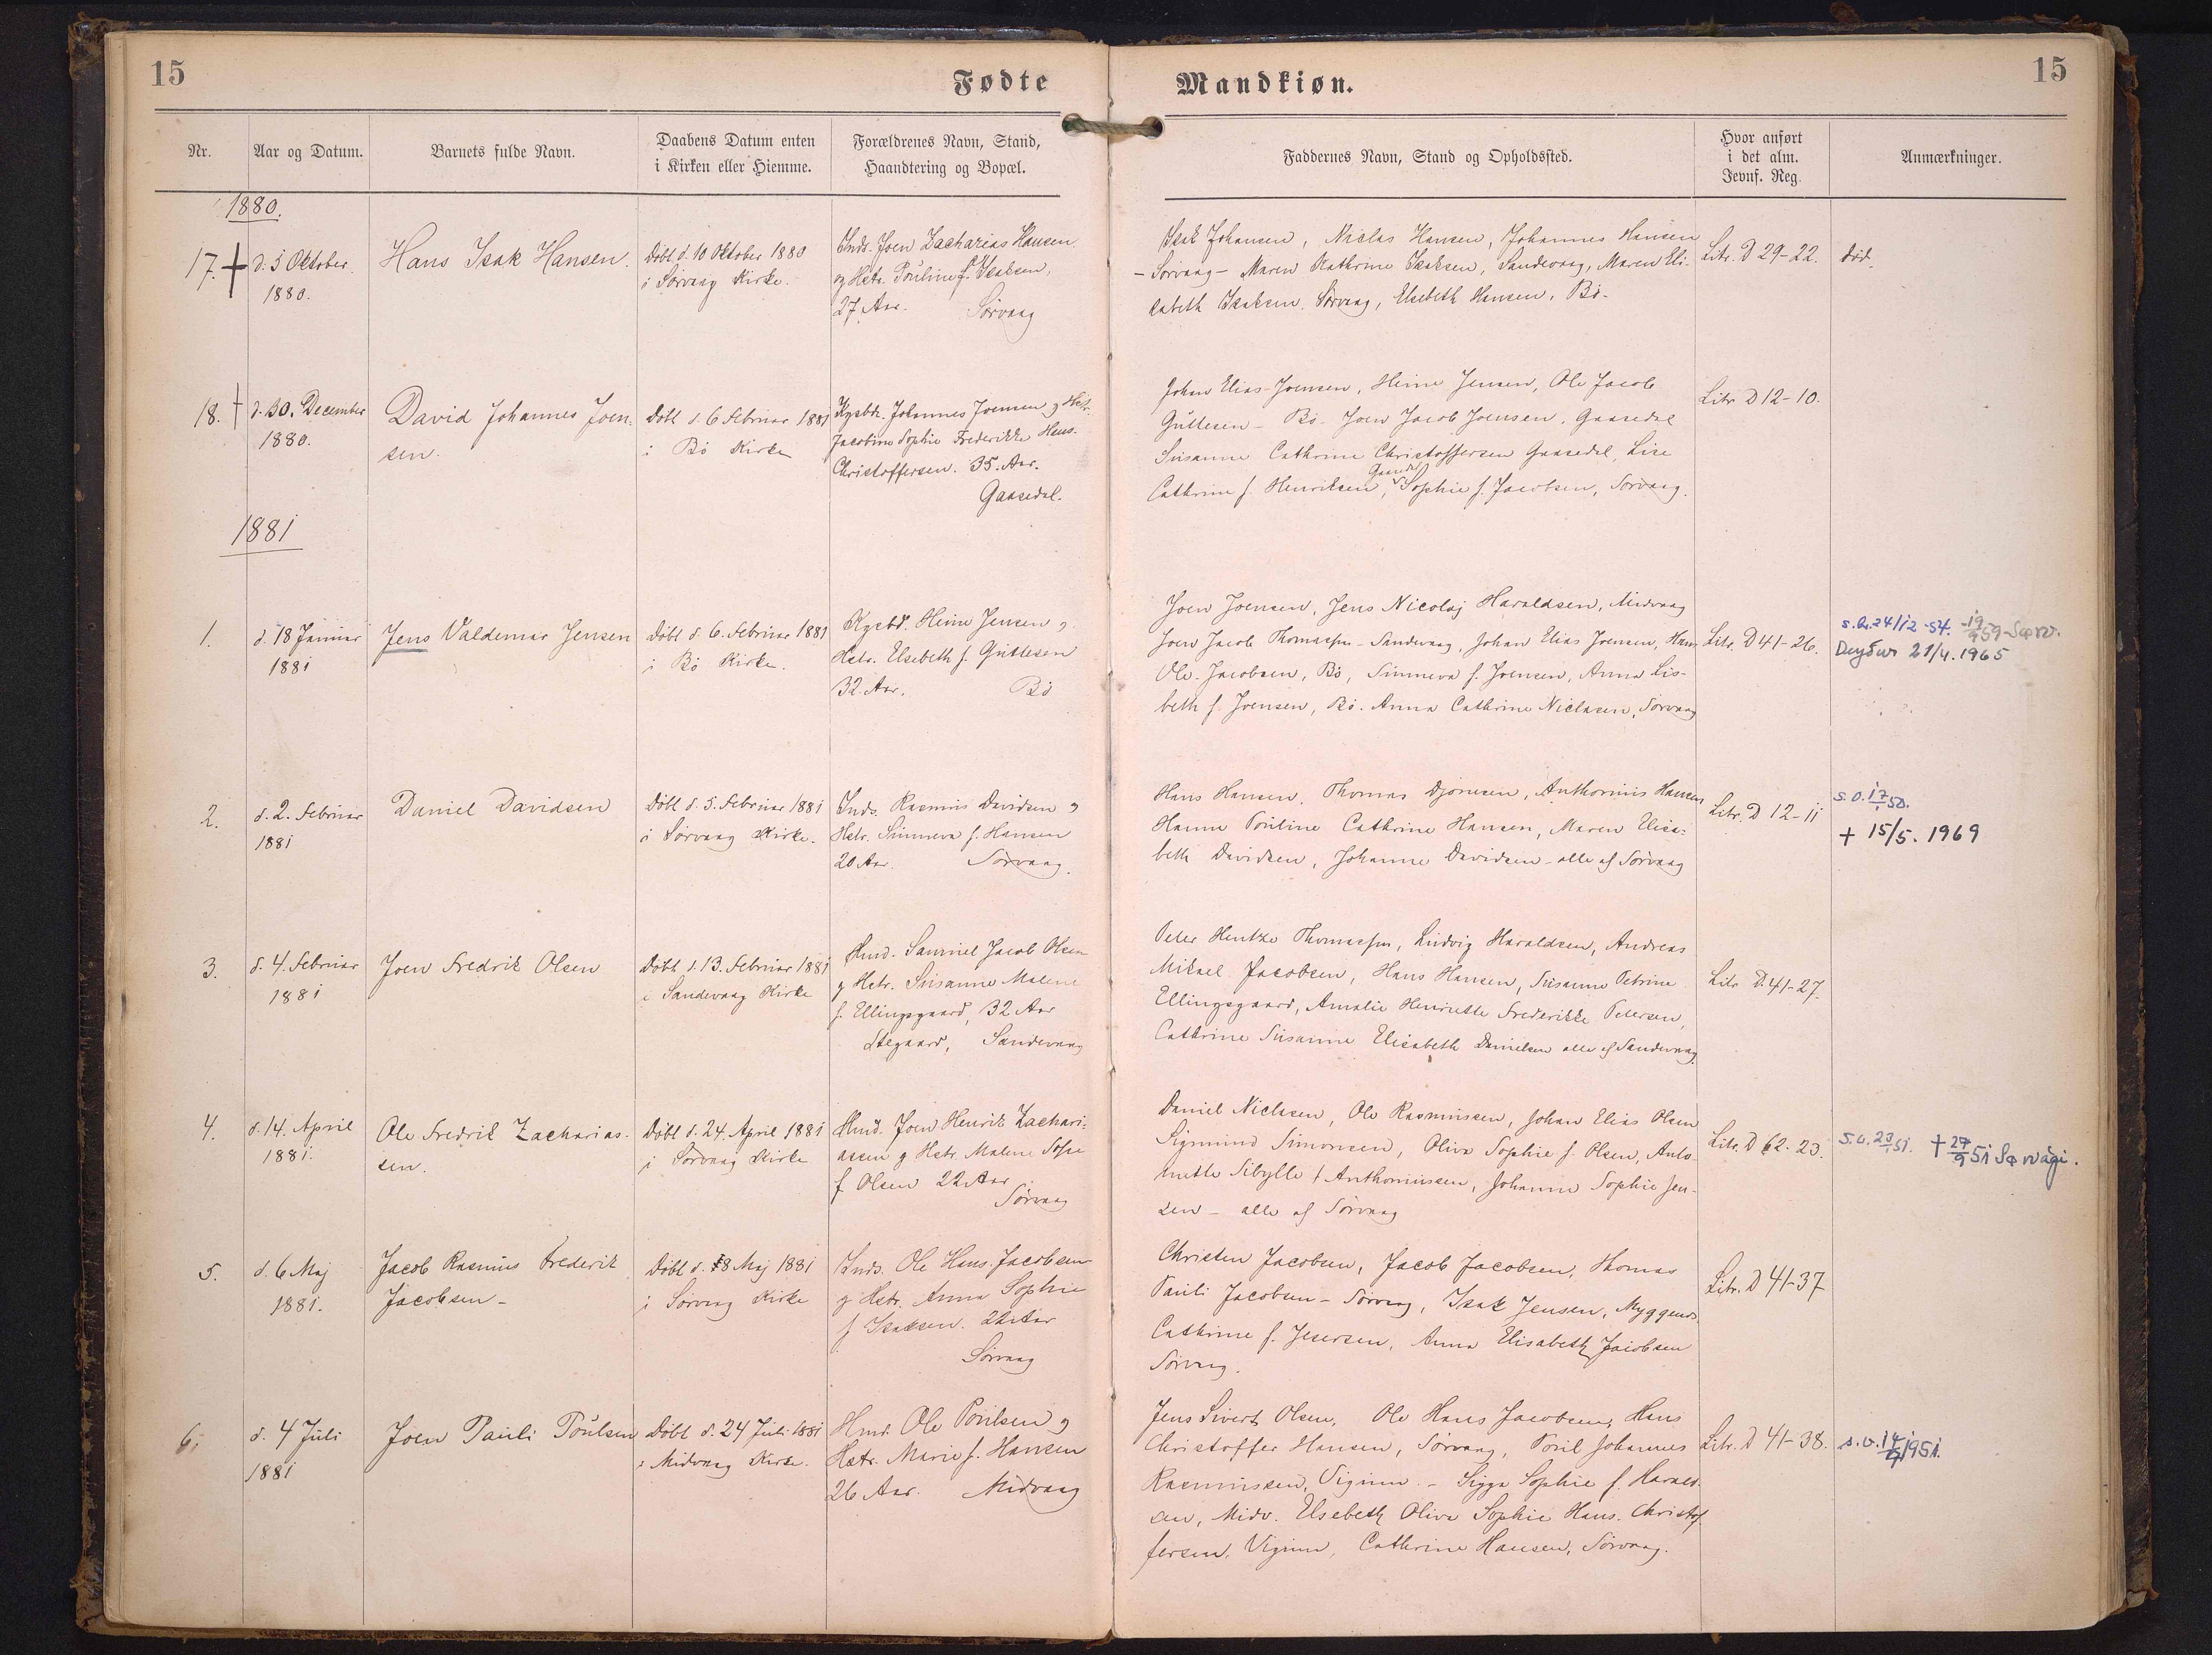 15
Fødte
Mandkiøn.
15
Nr.
Aar og Datum.
Barnets fulde Navn.
Daabens Datum enten
i Kirken eller Hiemme.
Forældrenes Navn, Stand,
Haandtering og Bopæl.
Faddernes Navn, Stand og Opholdssted.
Hvor anført
i det alm.
Jevnf. Reg.
Anmærkninger.
1880.
17. +
d. 5 Oktober
1880.
Hans Isak Hansen.
Döbt d. 10 Oktober 1880
i Sörvaag Kirke.
Inds. Joen Zacharias Hansen
og Hstr. Pouline f. Isaksen,
27 Aar. Sörvaag
Isak Johansen, Niclas Hansen, Johannes Hansen
- Sörvaag - Maren Kathrine Isaksen, Sandevaag, Maren Eli-
sabeth Isaksen, Sörvaag, Elsebeth Hansen, Bö.
Litr. D 29-22.
död.
18. †
d. 30. December
1880.
David Johannes Joen-
sen.
Döbt d. 6 Februar 1881
i Bö Kirke
Kgsbdr. Johannes Joensen og Hstr.
Jacobine Sophie Frederikke Hans-
Christoffersen. 35. Aar.
Gaasedal.
Johan Elias Joensen, Heine Jensen, Ole Jacob
Guttesen - Bö - Joen Jacob Joensen, Gaasedal
Susanne Cathrine Christoffersen Gaasedal, Lise
Cathrine f. Henriksen, Gaasedal Sophie f. Jacobsen, Sörvaag.
Litr D 12-10.
1881
1.
d. 18 Januar
1881
Jens Valdemar Jensen
Döbt d. 6. Februar 1881
i Bö Kirke.
Kgsbd. Heine Jensen og
Hstr. Elsebeth f. Guttesen
32. Aar. Bö
Joen Joensen, Jens Nicolaj Haraldsen, Midvaag
Joen Jacob Thomassen - Sandevaag, Johan Elias Joensen, Hans
Ole Jacobsen, Bö, Sunneva f. Joensen, Anna Lis-
beth f. Joensen, Bö. Anna Cathrine Niclasen, Sörvaag
Litr. D 41-26.
24/12-54. 19/9 59 - Sørv.
Deyður 21/4. 1965
2.
d. 2. Februar
1881
Daniel Davidsen
Döbt d. 5. Februar 1881
i Sörvaag Kirke.
Inds. Rasmus Davidsen og
Hstr. Sunneva f. Hansen
20 Aar. Sörvaag.
Hans Hansen, Thomas Djonesen, Anthonius Hansen
Hanne Pouline Cathrine Hansen, Maren Elisa-
beth Davidsen, Johanne Davidsen - alle af Sörvaag
Litr. D 12-11
s.o. 17/1 50.
+ 15/5. 1969
3.
d. 4. Februar
1881
Joen Fredrik Olsen
Döbt d. 13. Februar 1881
i Sandevaag Kirke
Hmd. Samuel Jacob Olsen
og Hstr. Susanne Malene
f. Ellingsgaard, 32 Aar
Stegaard, Sandevaag
Peter Hentze Thomassen, Ludvig Haraldsen, Andreas
Mikael Jacobsen, Hans Hansen, Susanne Petrine
Ellingsgaard, Amalie Henriette Frederikke Petersen,
Cathrine Susanne Elisabeth Danielsen alle af Sandevaag.
Litr D. 41-27.
4.
d. 14. April
1881.
Ole Fredrik Zacharias-
sen.
Döbt d. 24. April 1881
i Sörvaag Kirke
Hmd. Joen Henrik Zachari-
assen og Hstr. Malene Sofie
f. Olsen 22 Aar
Sörvaag
Daniel Niclasen, Ole Rasmussen, Johan Elias Olsen
Sigmund Simonsen, Oliva Sophie f. Olsen, Anto-
nette Sibylle f. Anthoniussen, Johanne Sophie Jen-
sen - alle af Sörvaag
Litr. D 62-23.
s.o. 23/1 51. † 27/9 51 Sørvági.
5.
d. 6 Maj
1881.
Jacob Rasmus Frederik
Jacobsen -
Döbt d. 8 Maj 1881
i Sörvaag Kirke
Inds. Ole Hans Jacobsen
og Hstr. Anna Sophie
f. Isaksen. 22 Aar
Sörvaag
Christen Jacobsen, Jacob Jacobsen, Thomas
Pauli Jacobsen - Sörvaag, Isak Jensen, Myggenæs
Cathrine f. Jespersen, Anna Elisabeth Jacobsen
Sörvaag.
Litr. D 41-37
6.
d. 4 Juli
1881
Joen Pauli Poulsen
Döbt d. 24 Juli 1881
i Midvaag Kirke.
Hmd. Ole Poulsen og
Hstr. Marie f. Hansen
26 Aar. Midvaag
Jens Sivert Olsen, Ole Hans Jacobsen, Hans
Christoffer Hansen, Sörvaag, Poul Johannes
Rasmussen, Viginm. - Sigga Sophie f. Harald-
sen, Midv. Elsebeth Oliva Sophie Hans. Christof-
fersen, Viginm, Cathrine Hansen, Sörvaag.
Litr. D 41-38.
s.o. 1951.